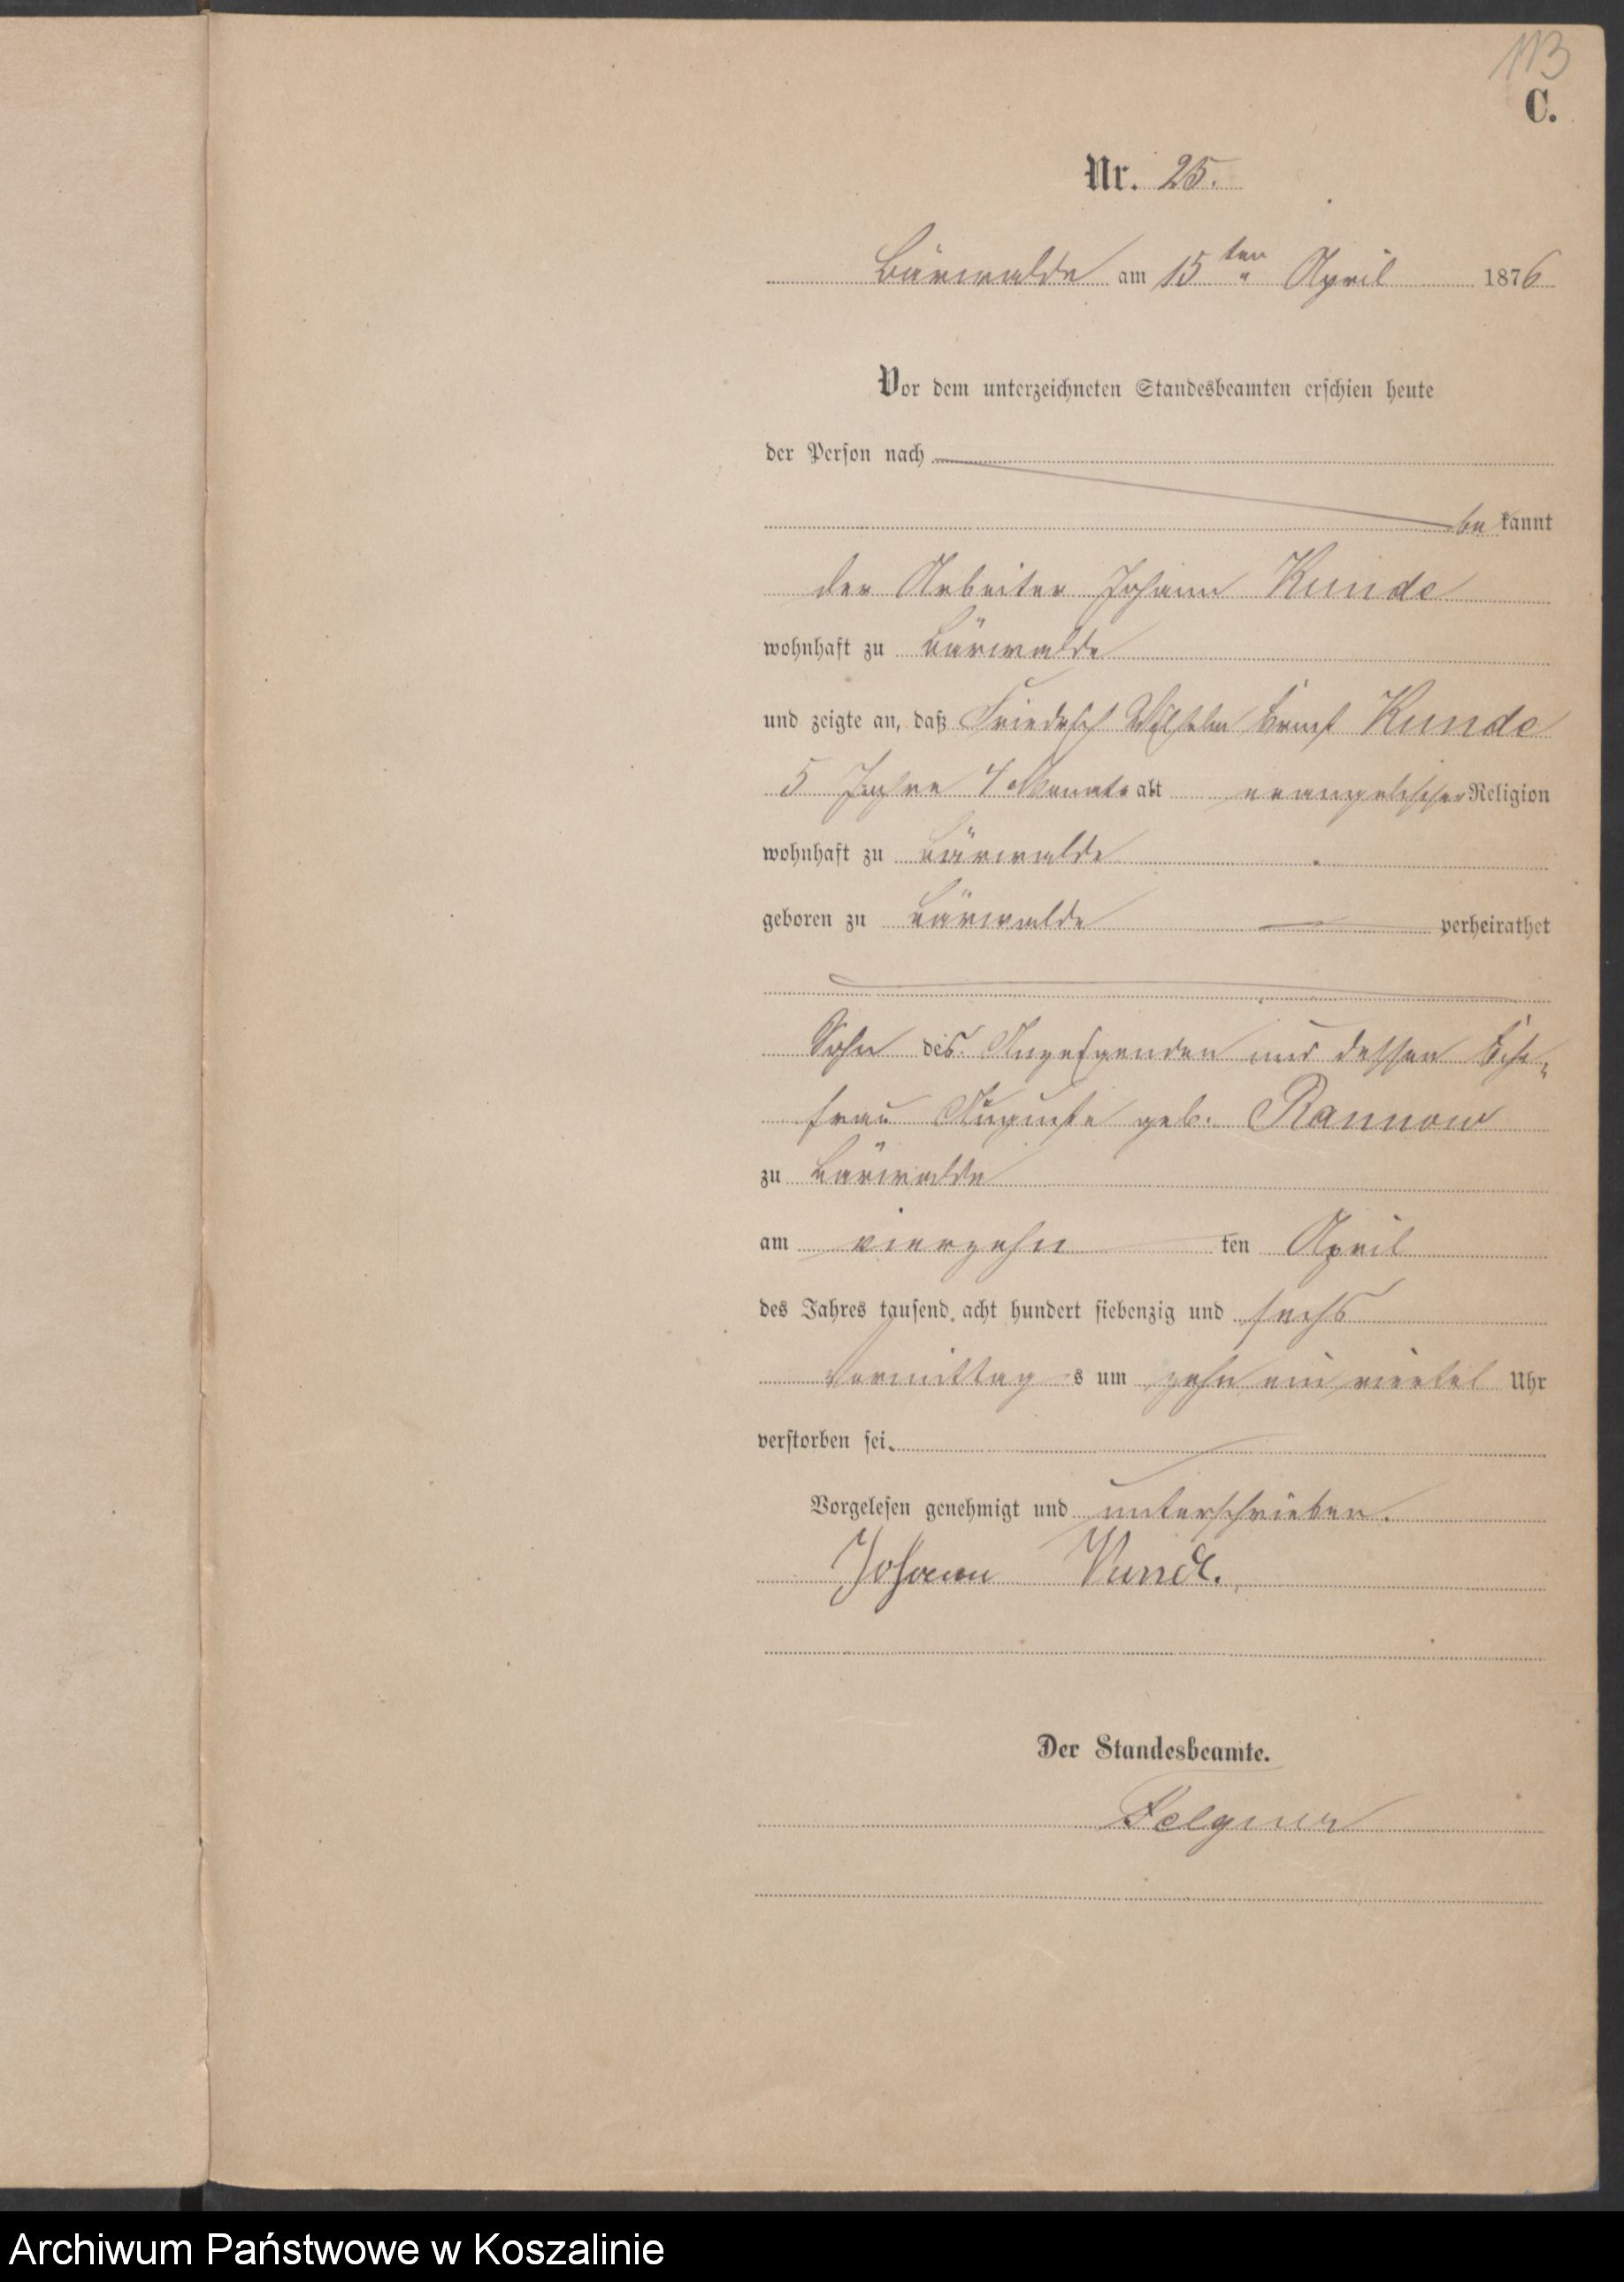 113
C.
Nr. 25.
Bärwalde am 15ten April 1876
Vor dem unterzeichneten Standesbeamten erschien heute
der Person nach
be kannt
der Arbeiter Johann Kunde
wohnhaft zu Bärwalde
und zeigte an, daß Friedrich Wilhelm Ernst Kunde
5 Jahre 4 Monate alt evangelischer Religion
wohnhaft zu Bärwalde
geboren zu Bärwalde verheirathet
Sohn des Anzeigenden und dessen Ehe-
frau Auguste geb. Rannow
zu Bärwalde
am vierzehn ten April
des Jahres tausend acht hundert siebenzig und sechs
Vormittag s um zehn ein viertel Uhr
verstorben sei.
Vorgelesen genehmigt und unterschrieben.
Johann Kunde.
Der Standesbeamte.
Felgner
Archiwum Państwowe w Koszalinie